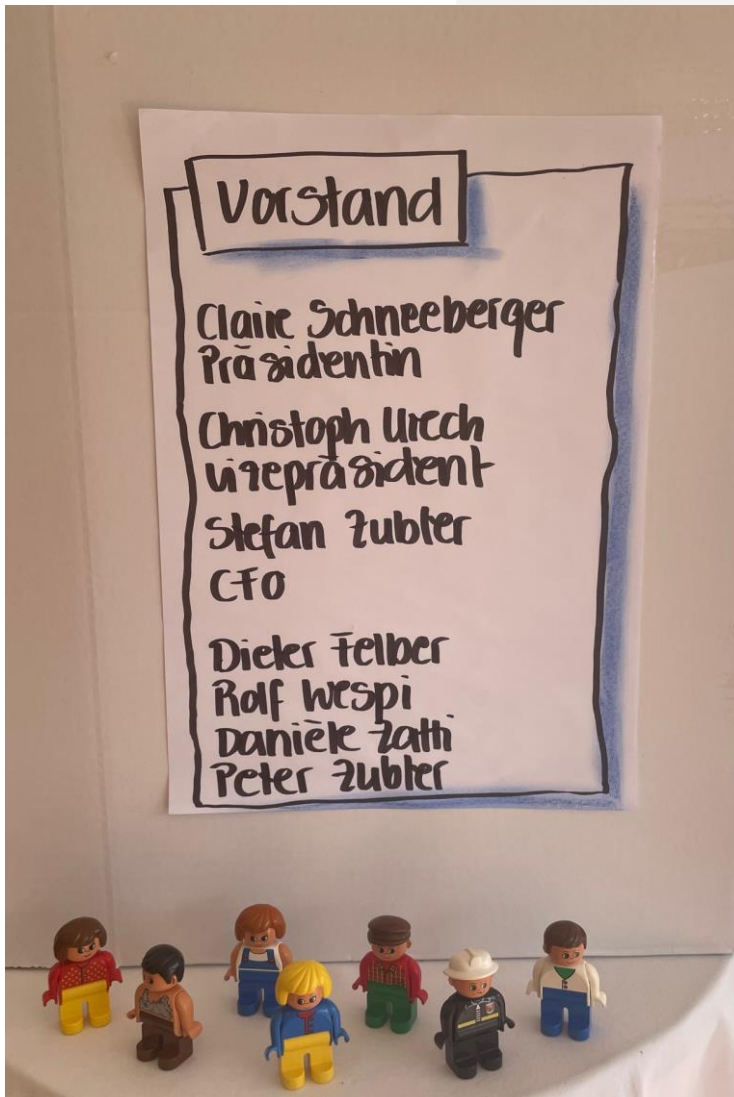 Vorstand
Claire Schneeberger
Präsidentin
Christoph Urech
Vizepräsident
Stefan Zubler
CFO
Dieter Felber
Rolf Wespi
Danièle Zatti
Peter Zubler